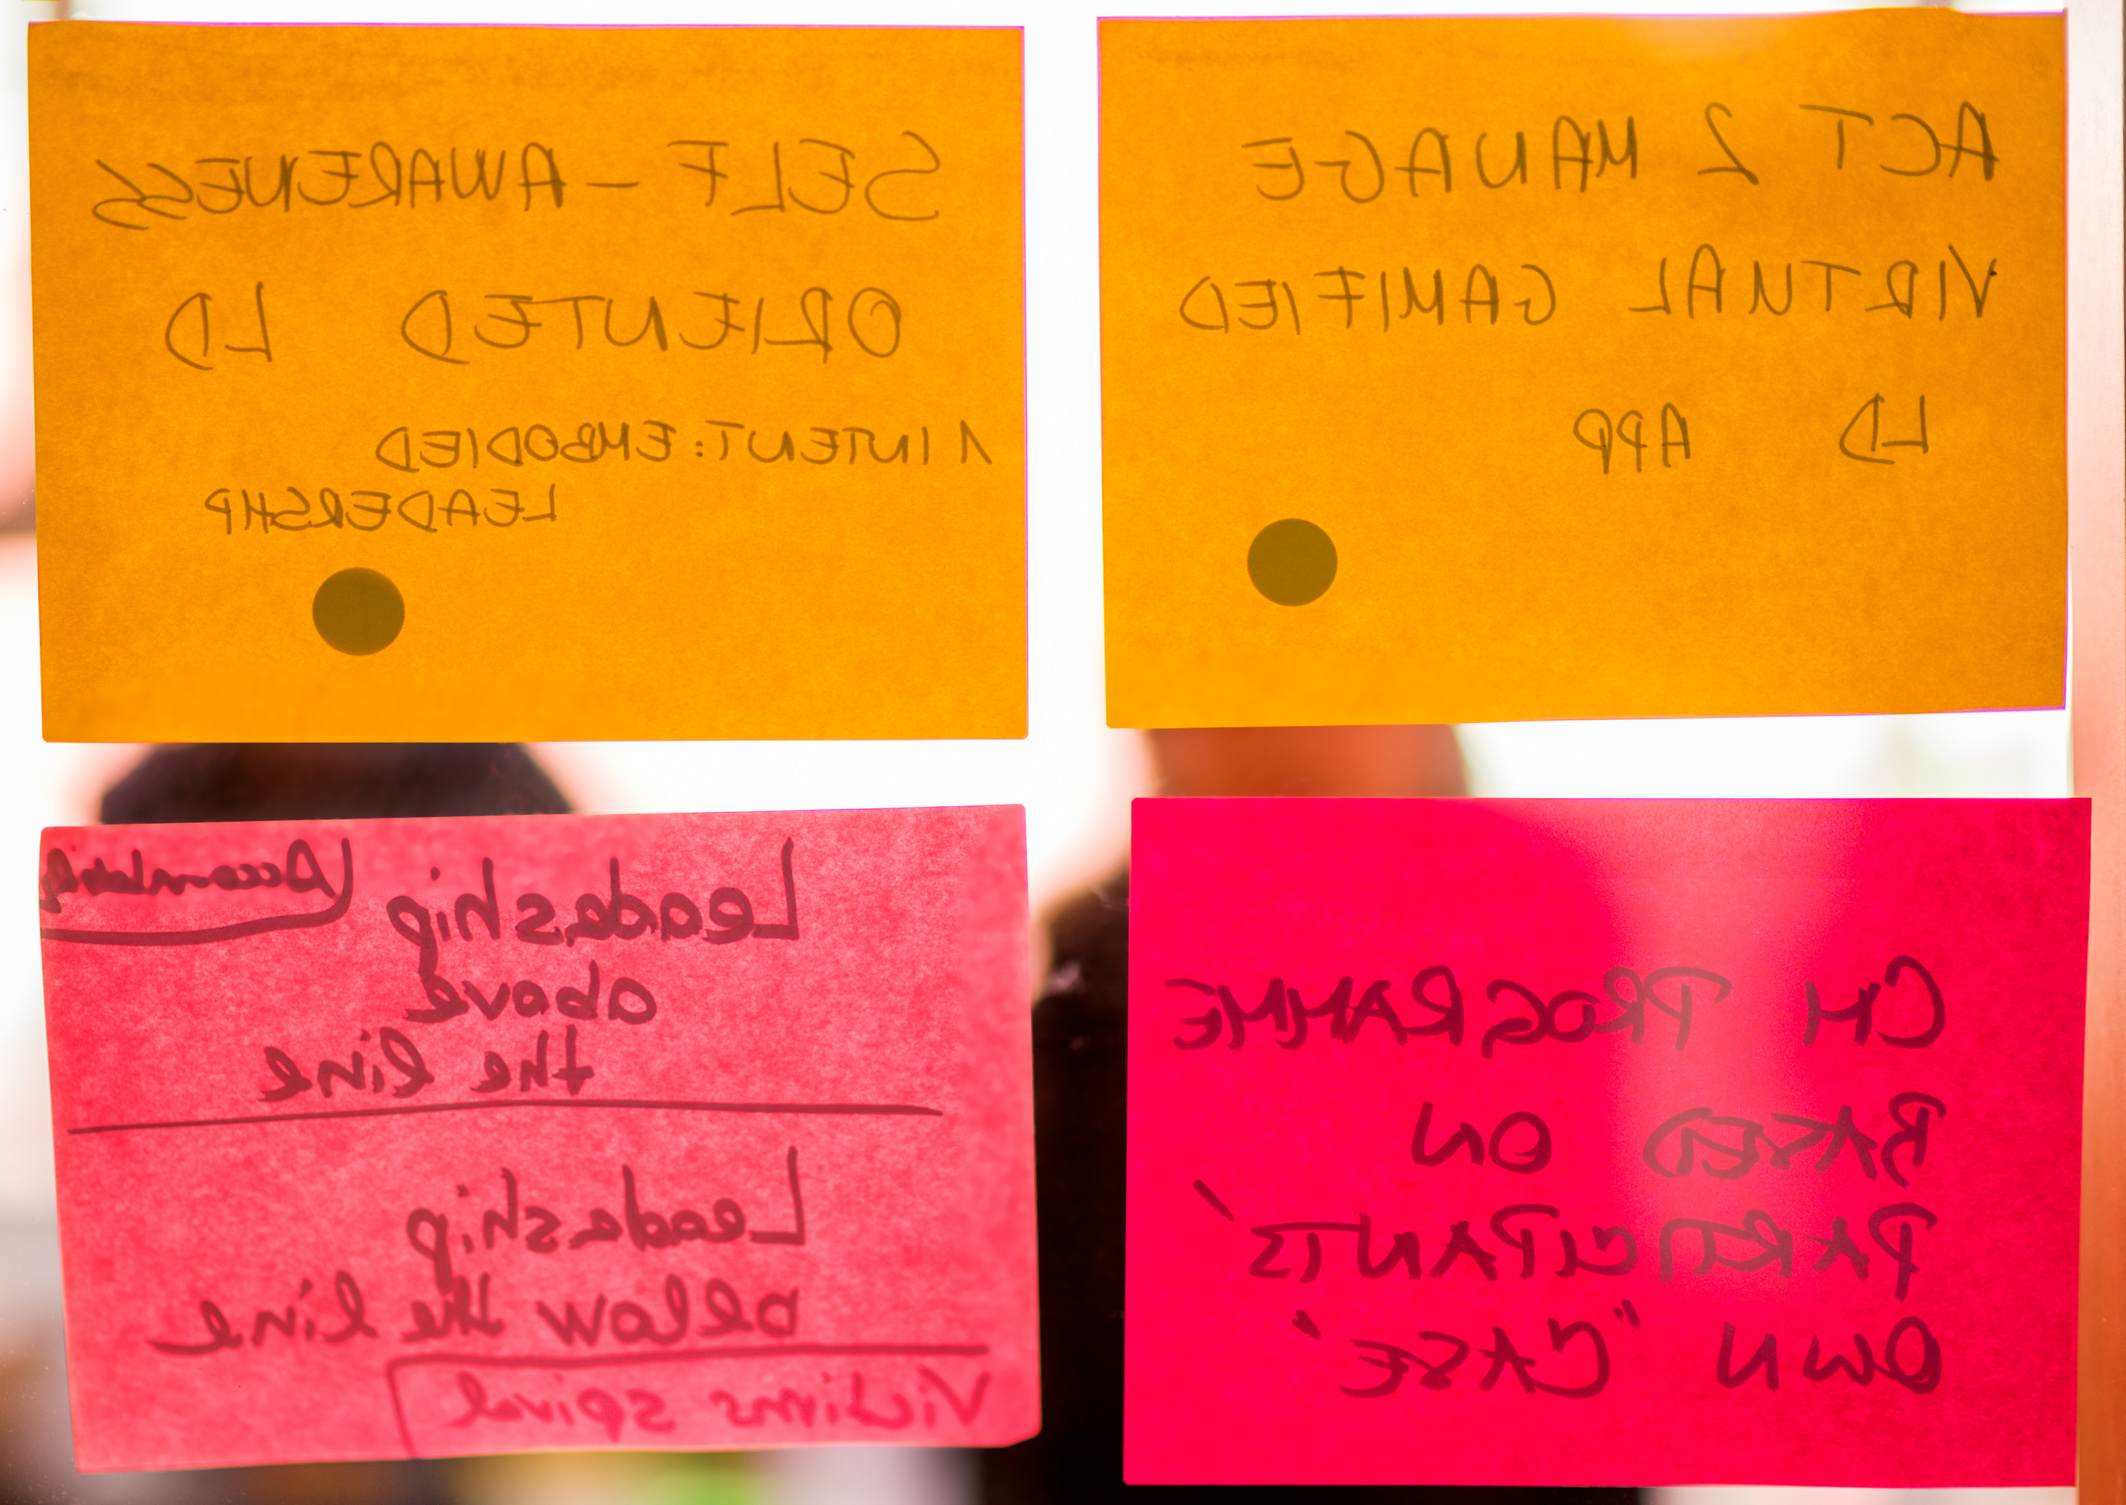 SELF-AWARENESS
ORIENTED LD
1 INTENT: EMBODIED
LEADERSHIP
ACT 2 MANAGE
VIRTUAL GAMIFIED
LD APP
Leadership
above
the line
Leadership
below the line
Victims spiral
CM PROGRAMME
BASED ON
PARTICIPANTS'
OWN "CASE"